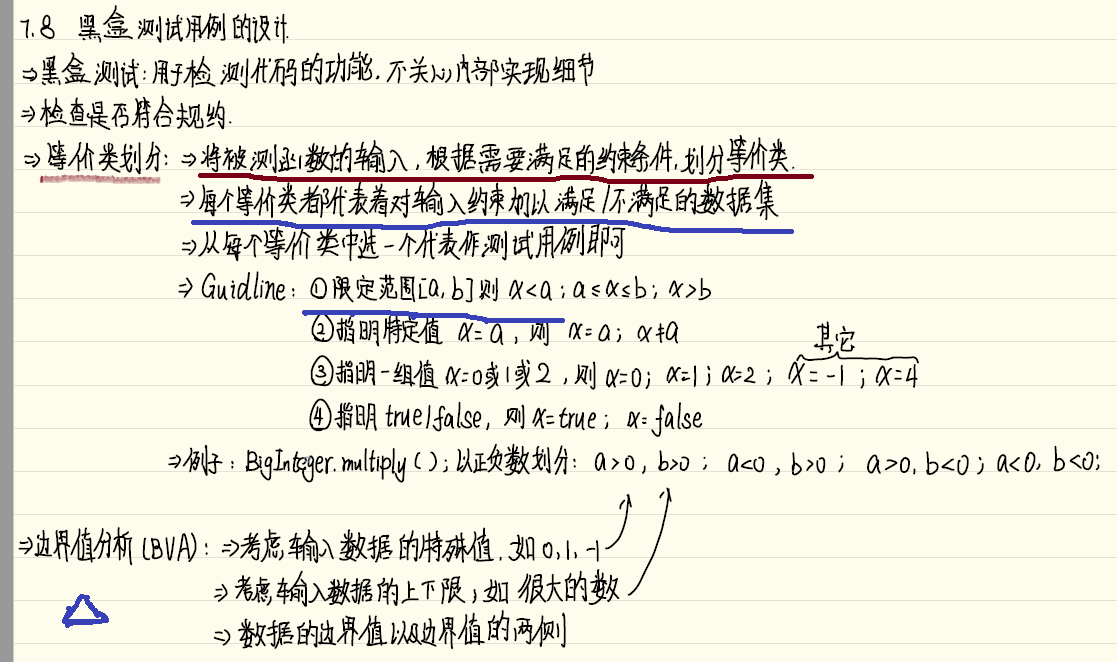 7.8 黑盒测试用例的设计
⇒黑盒测试:用于检测代码的功能.不关心内部实现细节
⇒检查是否符合规约.
⇒等价类划分:⇒将被测函数的输入,根据需要满足的约束条件,划分等价类.
⇒每个等价类都代表着对输入约束加以满足/不满足的数据集
⇒从每个等价类中选一个代表作测试用例即可
⇒Guidline:①限定范围[a,b]则 x<a;a≤x≤b;x>b
②指明特定值 x=a,则 x=a;x≠a
其它
③指明一组值 x=0或1或2,则 x=0;x=1;x=2;x=-1;x=4
④指明true/false,则x=true;x=false
⇒例子:BigInteger.multiply();以正负数划分:a>0,b>0;a<0,b>0;a>0,b<0;a<0,b<0;
⇒边界值分析(BVA):⇒考虑输入数据的特殊值.如0,1,-1
⇒考虑输入数据的上下限,如很大的数
⇒数据的边界值以及边界值的两侧